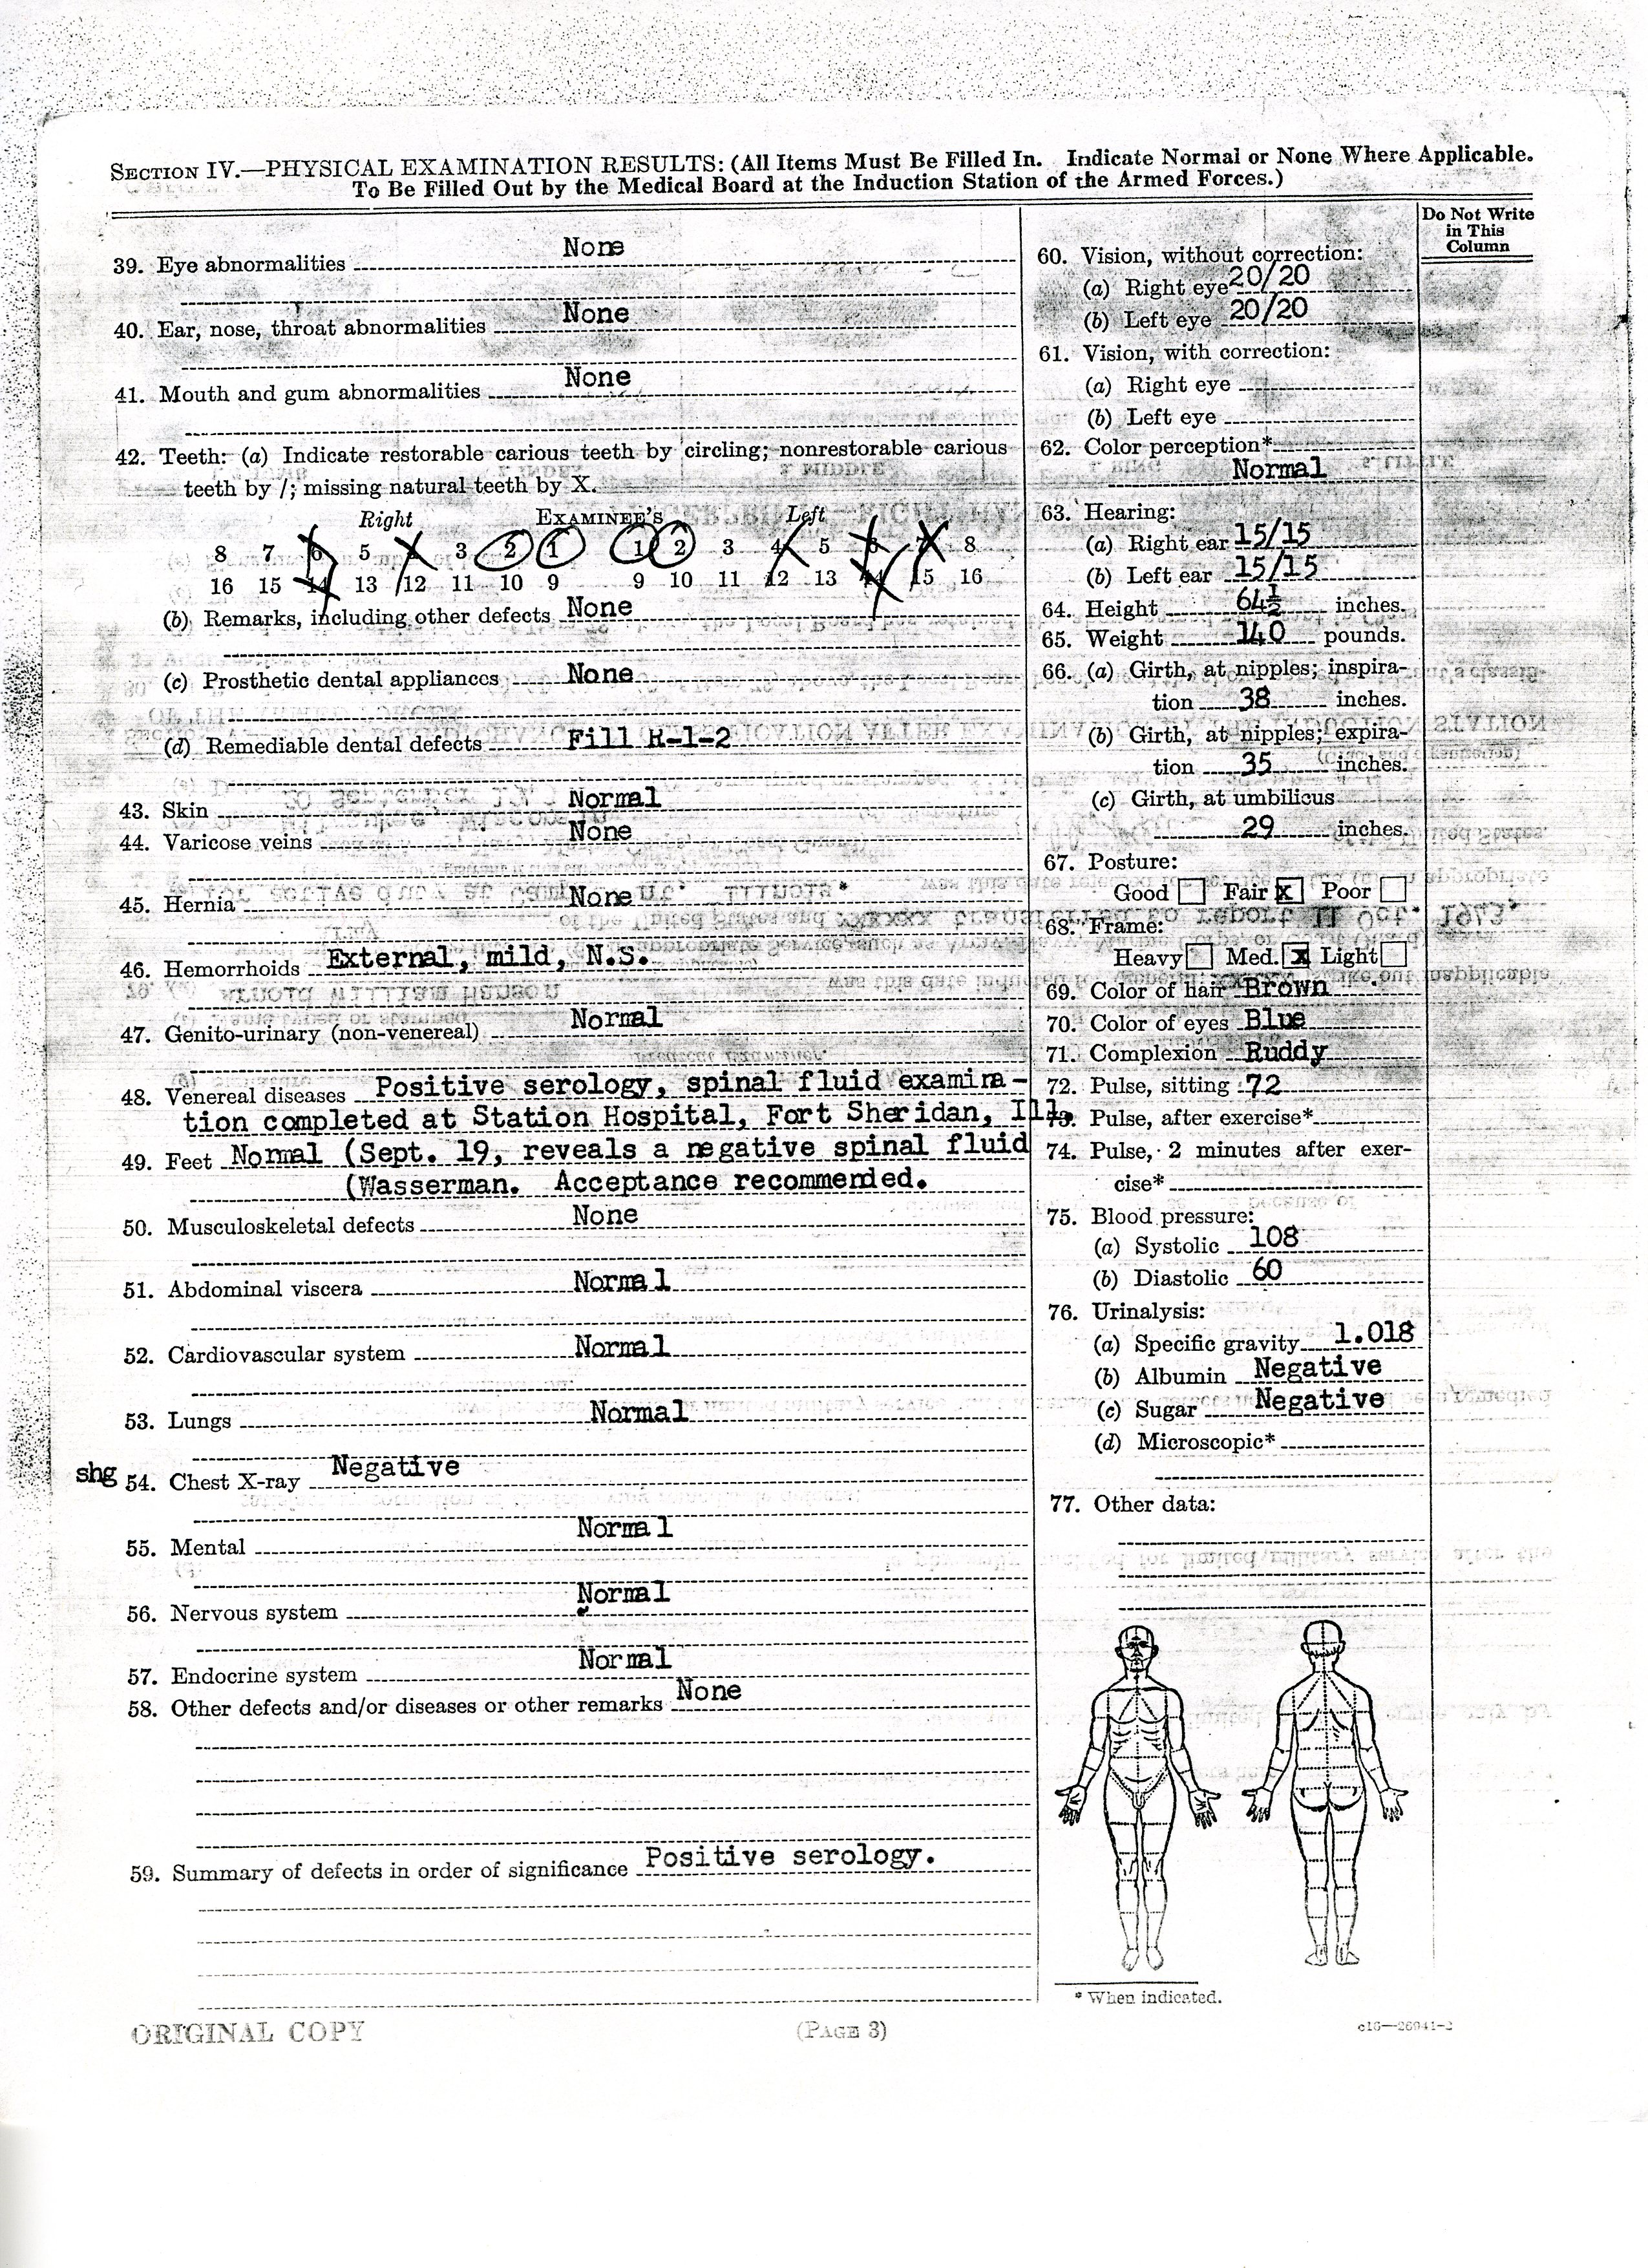 SECTION IV.—PHYSICAL EXAMINATION RESULTS: (All Items Must Be Filled In. Indicate Normal or None Where Applicable.
To Be Filled Out by the Medical Board at the Induction Station of the Armed Forces.)
39. Eye abnormalities None
40. Ear, nose, throat abnormalities None
41. Mouth and gum abnormalities None
42. Teeth: (a) Indicate restorable carious teeth by circling; nonrestorable carious
teeth by /; missing natural teeth by X.
Right EXAMINEE'S Left
8 7 6 5 4 3 2 1 1 2 3 4 5 6 7 8
16 15 14 13 12 11 10 9 9 10 11 12 13 14 15 16
(b) Remarks, including other defects None
(c) Prosthetic dental appliances None
(d) Remediable dental defects Fill R-1-2
43. Skin Normal
44. Varicose veins None
45. Hernia None
46. Hemorrhoids External, mild, N.S.
47. Genito-urinary (non-venereal) Normal
48. Venereal diseases Positive serology, spinal fluid examina-
tion completed at Station Hospital, Fort Sheridan, Ill.
49. Feet Normal (Sept. 19, reveals a negative spinal fluid
(Wasserman. Acceptance recommended.
50. Musculoskeletal defects None
51. Abdominal viscera Normal
52. Cardiovascular system Normal
53. Lungs Normal
shg 54. Chest X-ray Negative
55. Mental Normal
56. Nervous system Normal
57. Endocrine system Normal
58. Other defects and/or diseases or other remarks None
59. Summary of defects in order of significance Positive serology.
Do Not Write
in This
Column
60. Vision, without correction:
(a) Right eye 20/20
(b) Left eye 20/20
61. Vision, with correction:
(a) Right eye
(b) Left eye
62. Color perception*
Normal
63. Hearing:
(a) Right ear 15/15
(b) Left ear 15/15
64. Height 64½ inches.
65. Weight 140 pounds.
66. (a) Girth, at nipples; inspira-
tion 38 inches.
(b) Girth, at nipples; expira-
tion 35 inches.
(c) Girth, at umbilicus
29 inches.
67. Posture:
Good Fair X Poor
68. Frame:
Heavy Med. X Light
69. Color of hair Brown
70. Color of eyes Blue
71. Complexion Ruddy
72. Pulse, sitting 72
73. Pulse, after exercise*
74. Pulse, 2 minutes after exer-
cise*
75. Blood pressure:
(a) Systolic 108
(b) Diastolic 60
76. Urinalysis:
(a) Specific gravity 1.018
(b) Albumin Negative
(c) Sugar Negative
(d) Microscopic*
77. Other data:
* When indicated.
ORIGINAL COPY (PAGE 3) c16—26941-2